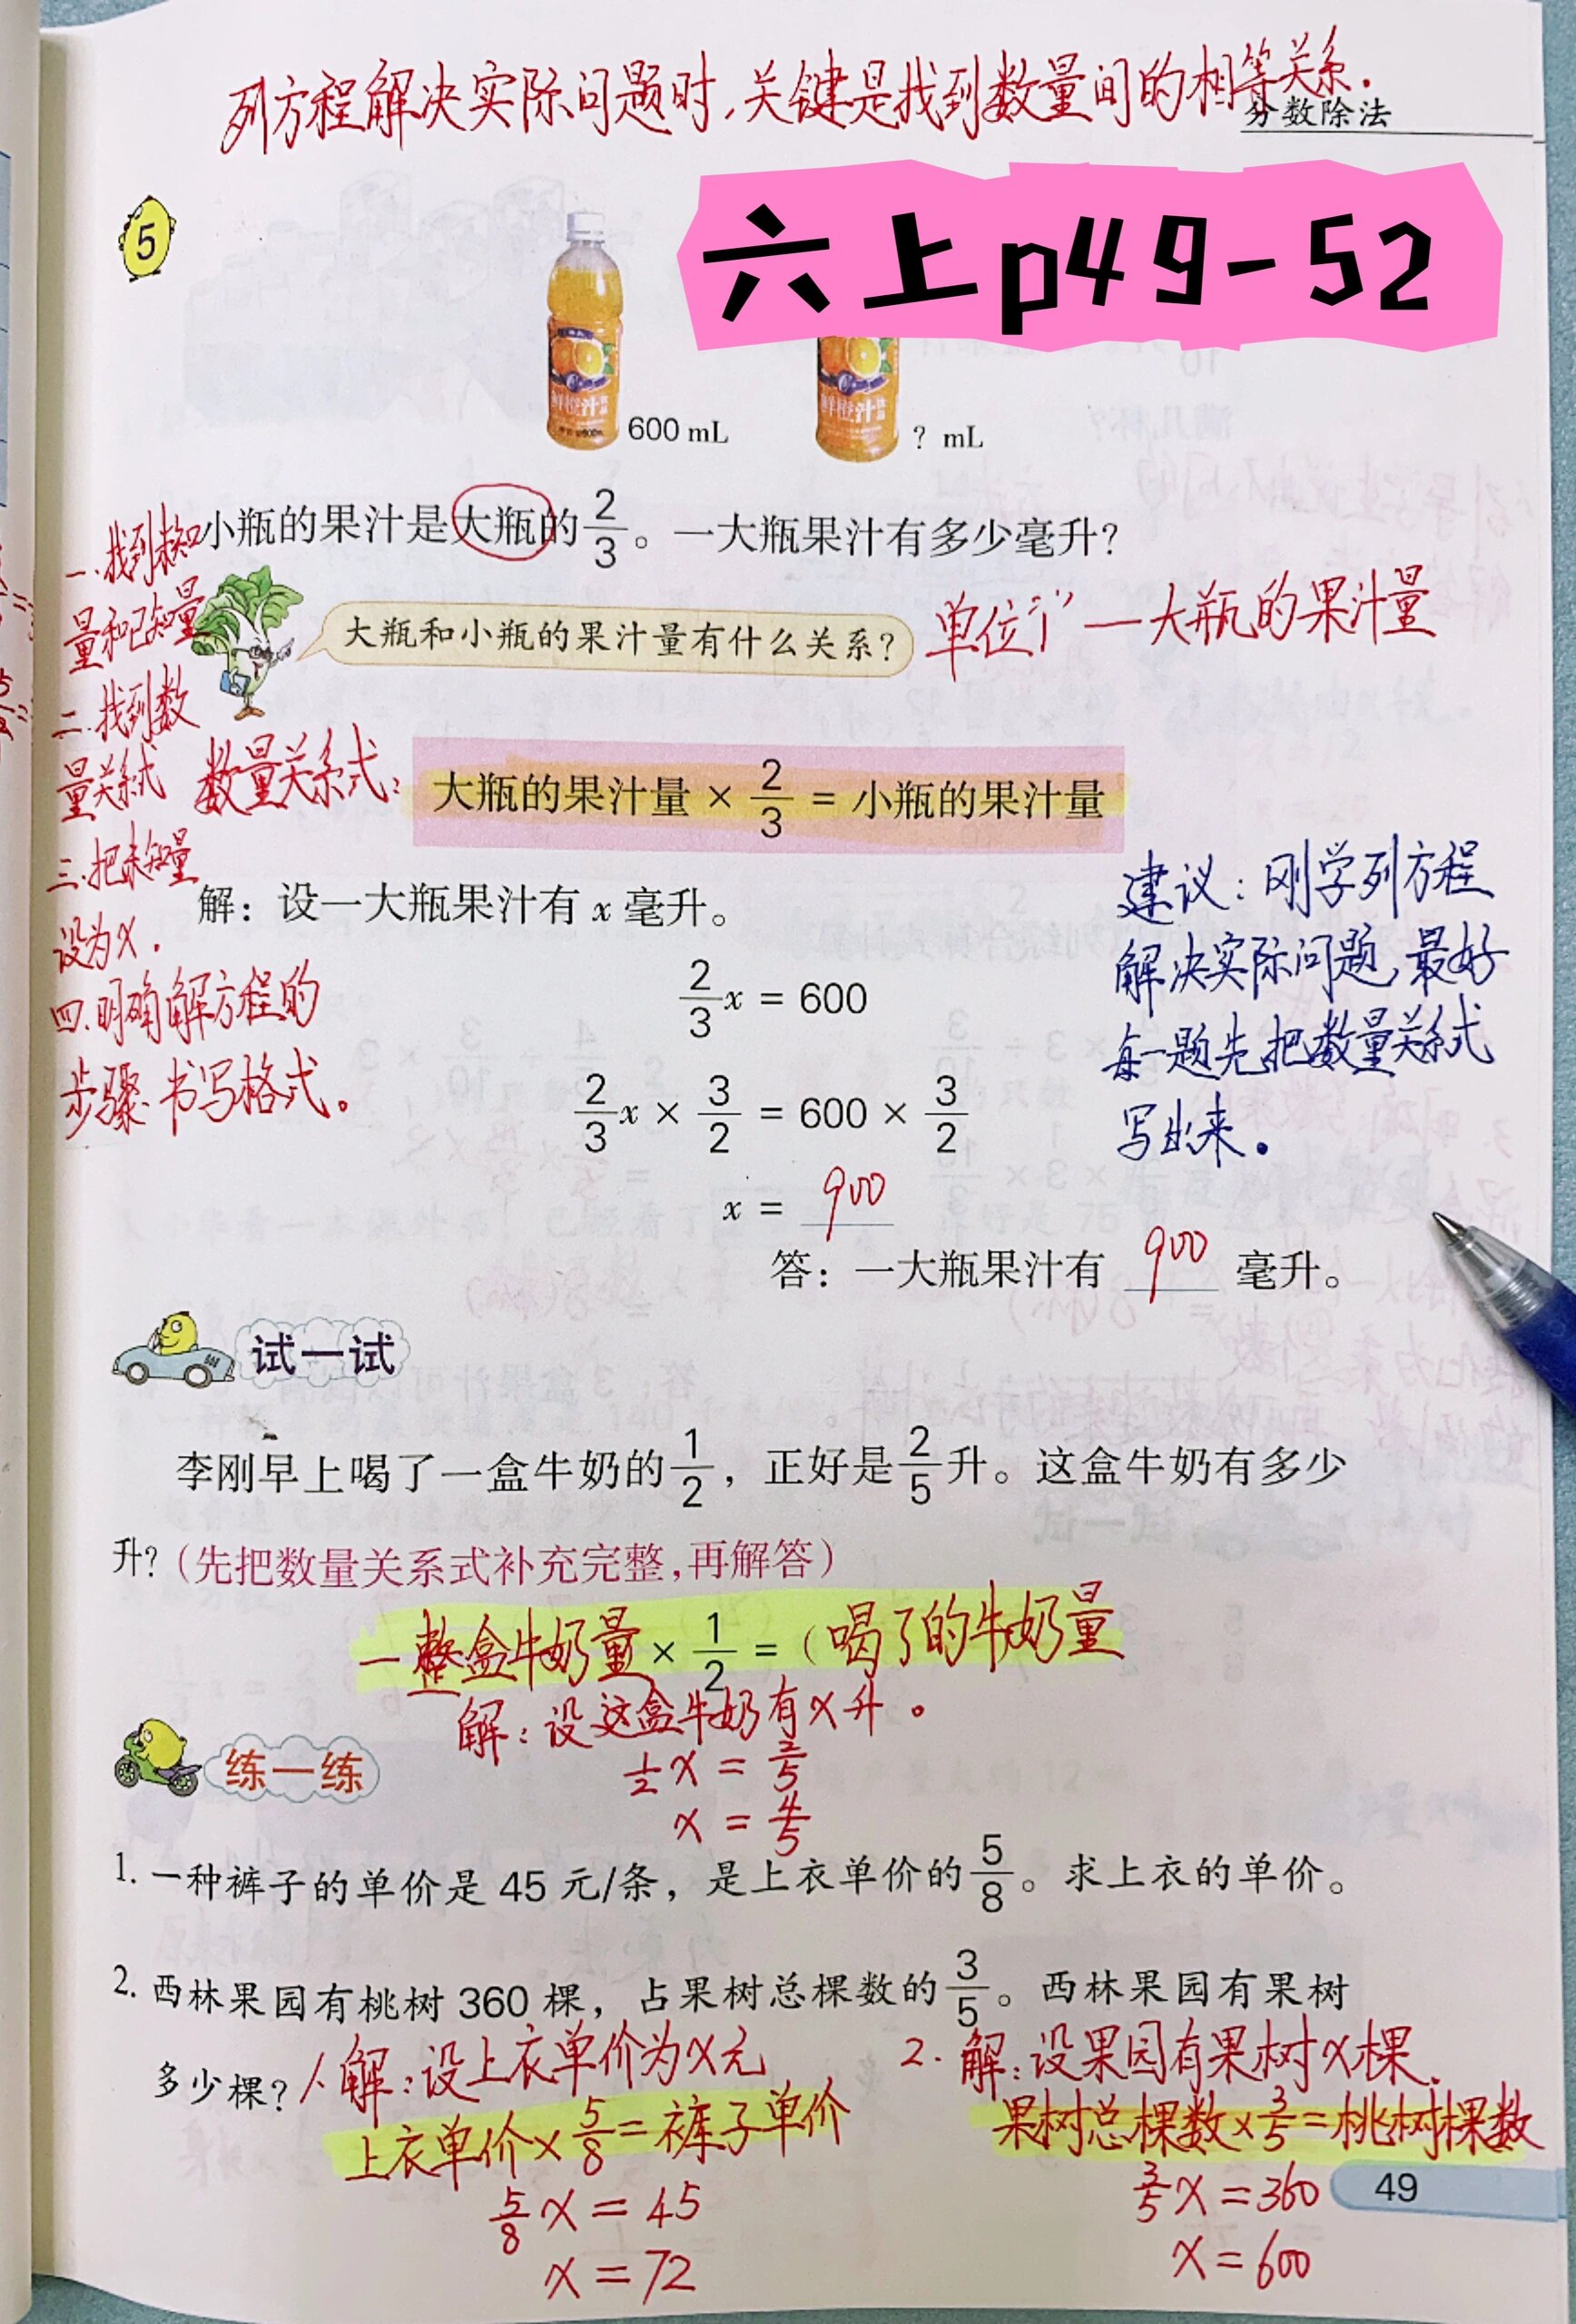 列方程解决实际问题时,关键是找到数量间的相等关系.
分数除法
5
六上p49-52
600 mL
? mL
小瓶的果汁是大瓶的2/3。一大瓶果汁有多少毫升?
一.找到未知
量和已知量
二.找到数
量关系式
三.把未知量
设为x.
四.明确解方程的
步骤.书写格式。
大瓶和小瓶的果汁量有什么关系?
单位"1" 一大瓶的果汁量
数量关系式:
大瓶的果汁量 × 2/3 = 小瓶的果汁量
解: 设一大瓶果汁有 x 毫升。
2/3x = 600
2/3x × 3/2 = 600 × 3/2
x = 900
答: 一大瓶果汁有 900 毫升。
建议: 刚学列方程
解决实际问题,最好
每一题先把数量关系式
写出来。
试一试
李刚早上喝了一盒牛奶的1/2, 正好是2/5升。这盒牛奶有多少
升?(先把数量关系式补充完整,再解答)
一整盒牛奶量 × 1/2 = (喝了的牛奶量
解: 设这盒牛奶有x升。
1/2x = 2/5
x = 4/5
练一练
1. 一种裤子的单价是 45 元/条, 是上衣单价的5/8。求上衣的单价。
2. 西林果园有桃树 360 棵, 占果树总棵数的3/5。西林果园有果树
多少棵?
1. 解: 设上衣单价为x元
上衣单价×5/8=裤子单价
5/8x = 45
x = 72
2. 解: 设果园有果树x棵.
果树总棵数×3/5=桃树棵数
3/5x = 360
x = 600
49